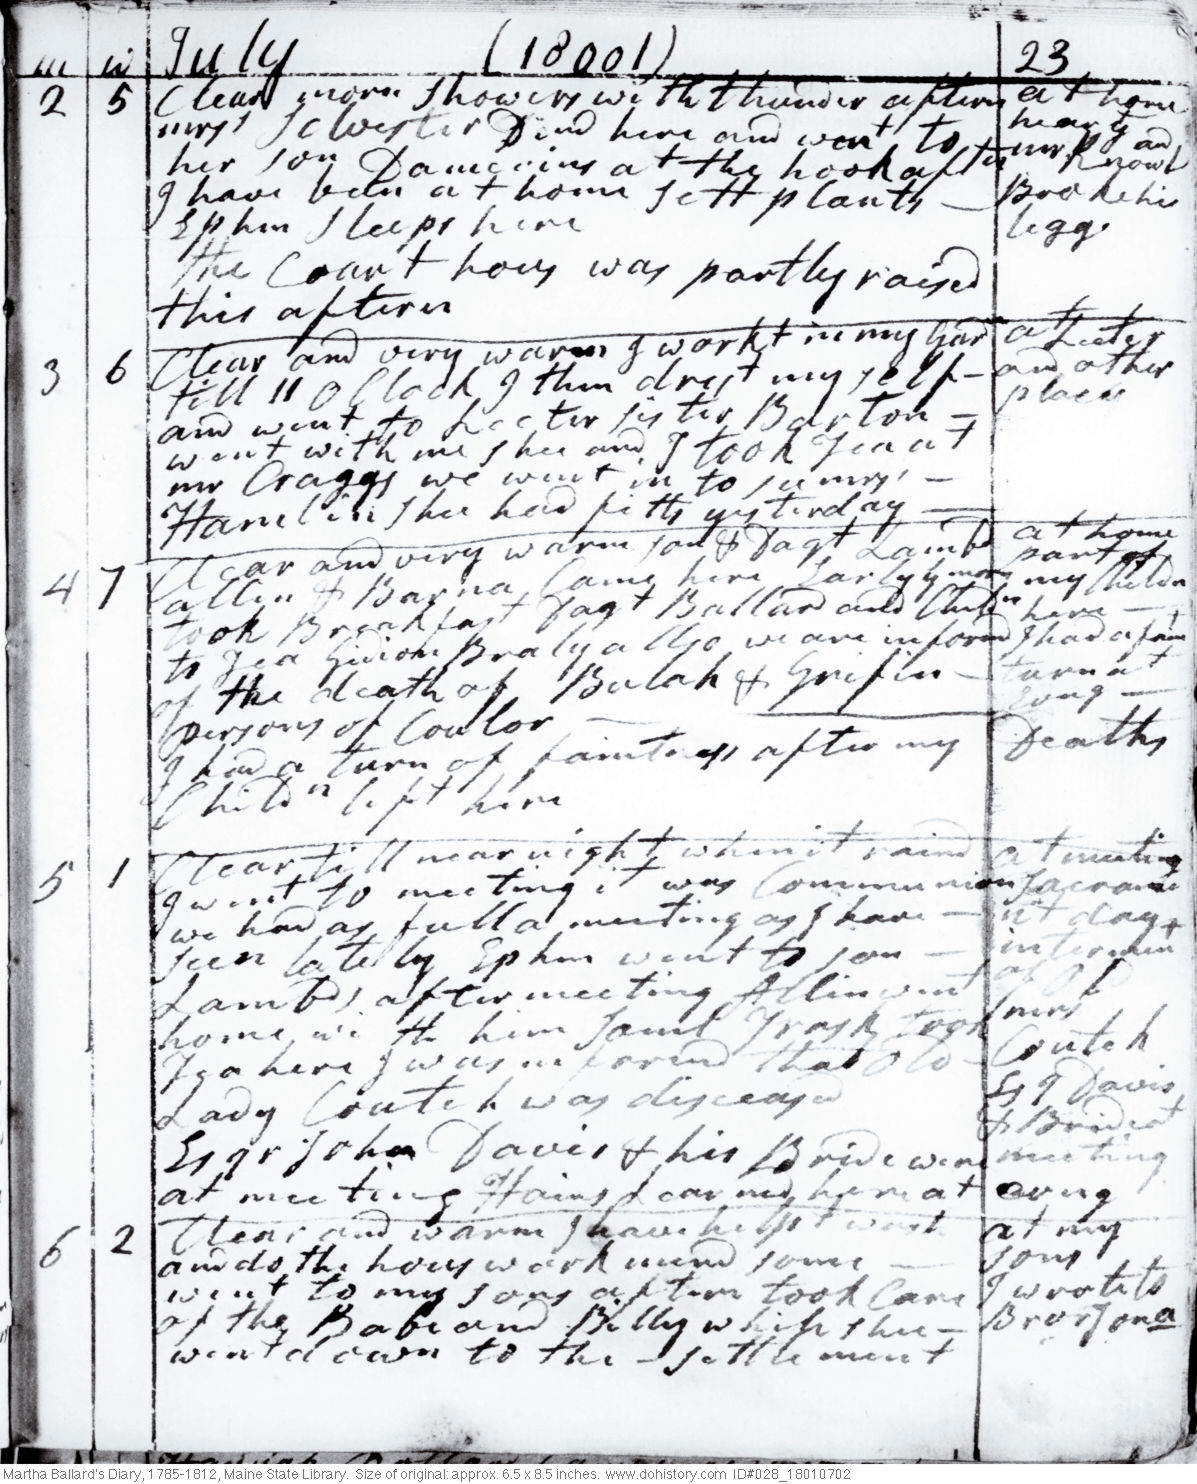 m w July (18001) 23
2 5 Clear morn Showers with thunder aftern
mrss Selvester Dind here and went to
her son Damerins at the hook aftn
I have been at home sett plants —
Ephm Sleeps here
the Court hous was partly raised
this aftern
at home
heard
mr Pg and
Knowl
Broke his
legg.
3 6 Clear and very warm I workt in my Gard
till 11 O Clock I then drest my self –
and went to Lecter sister Barton –
went with me shee and I took Tea at
mr Craggs we went in to see mrss –
Hamlin Shee had fitts yesterday —
at Lecter
and other
places
4 7 Clear and very warm son & Dagt Lambd
allin & Barna Came here Early morn
took Breakfast Dagt Ballard and Childn
to Tea Gidion Braly allso we are informd
of the death of Bulah & Grifin –
persons of Coulor —
I had a turn of faintness after my
Childn left here
at home
part of
my Childn
here —
I had a faint
turn at
Evng —
Deaths
5 1 Clear till near night when it raind
I went to meeting it was Communion
we had as full a meeting as I have –
seen lately Ephm went to son –
Lambds after meeting Allin went
home with him Saml Trask took
Tea here I was informd that Old
Lady Coutch was diseeasd
Esqr John Davis & his Bride were
at meeting Hains Learned here at
at meeting
Sacrame
nt day
interment
of Old
mrs
Coutch
Esq Davis
& Bride at
meeting
evng
6 2 Clear and warm I have helpt wash
and do the hous work mend some —
went to my sons aftern took Care
of the Babe and Billy while shee –
went down to the – settlement
at my
sons
I wrote to
Bror Jona
Martha Ballard's Diary, 1785-1812, Maine State Library. Size of original: approx. 6.5 x 8.5 inches. www.dohistory.com ID#028_18010702